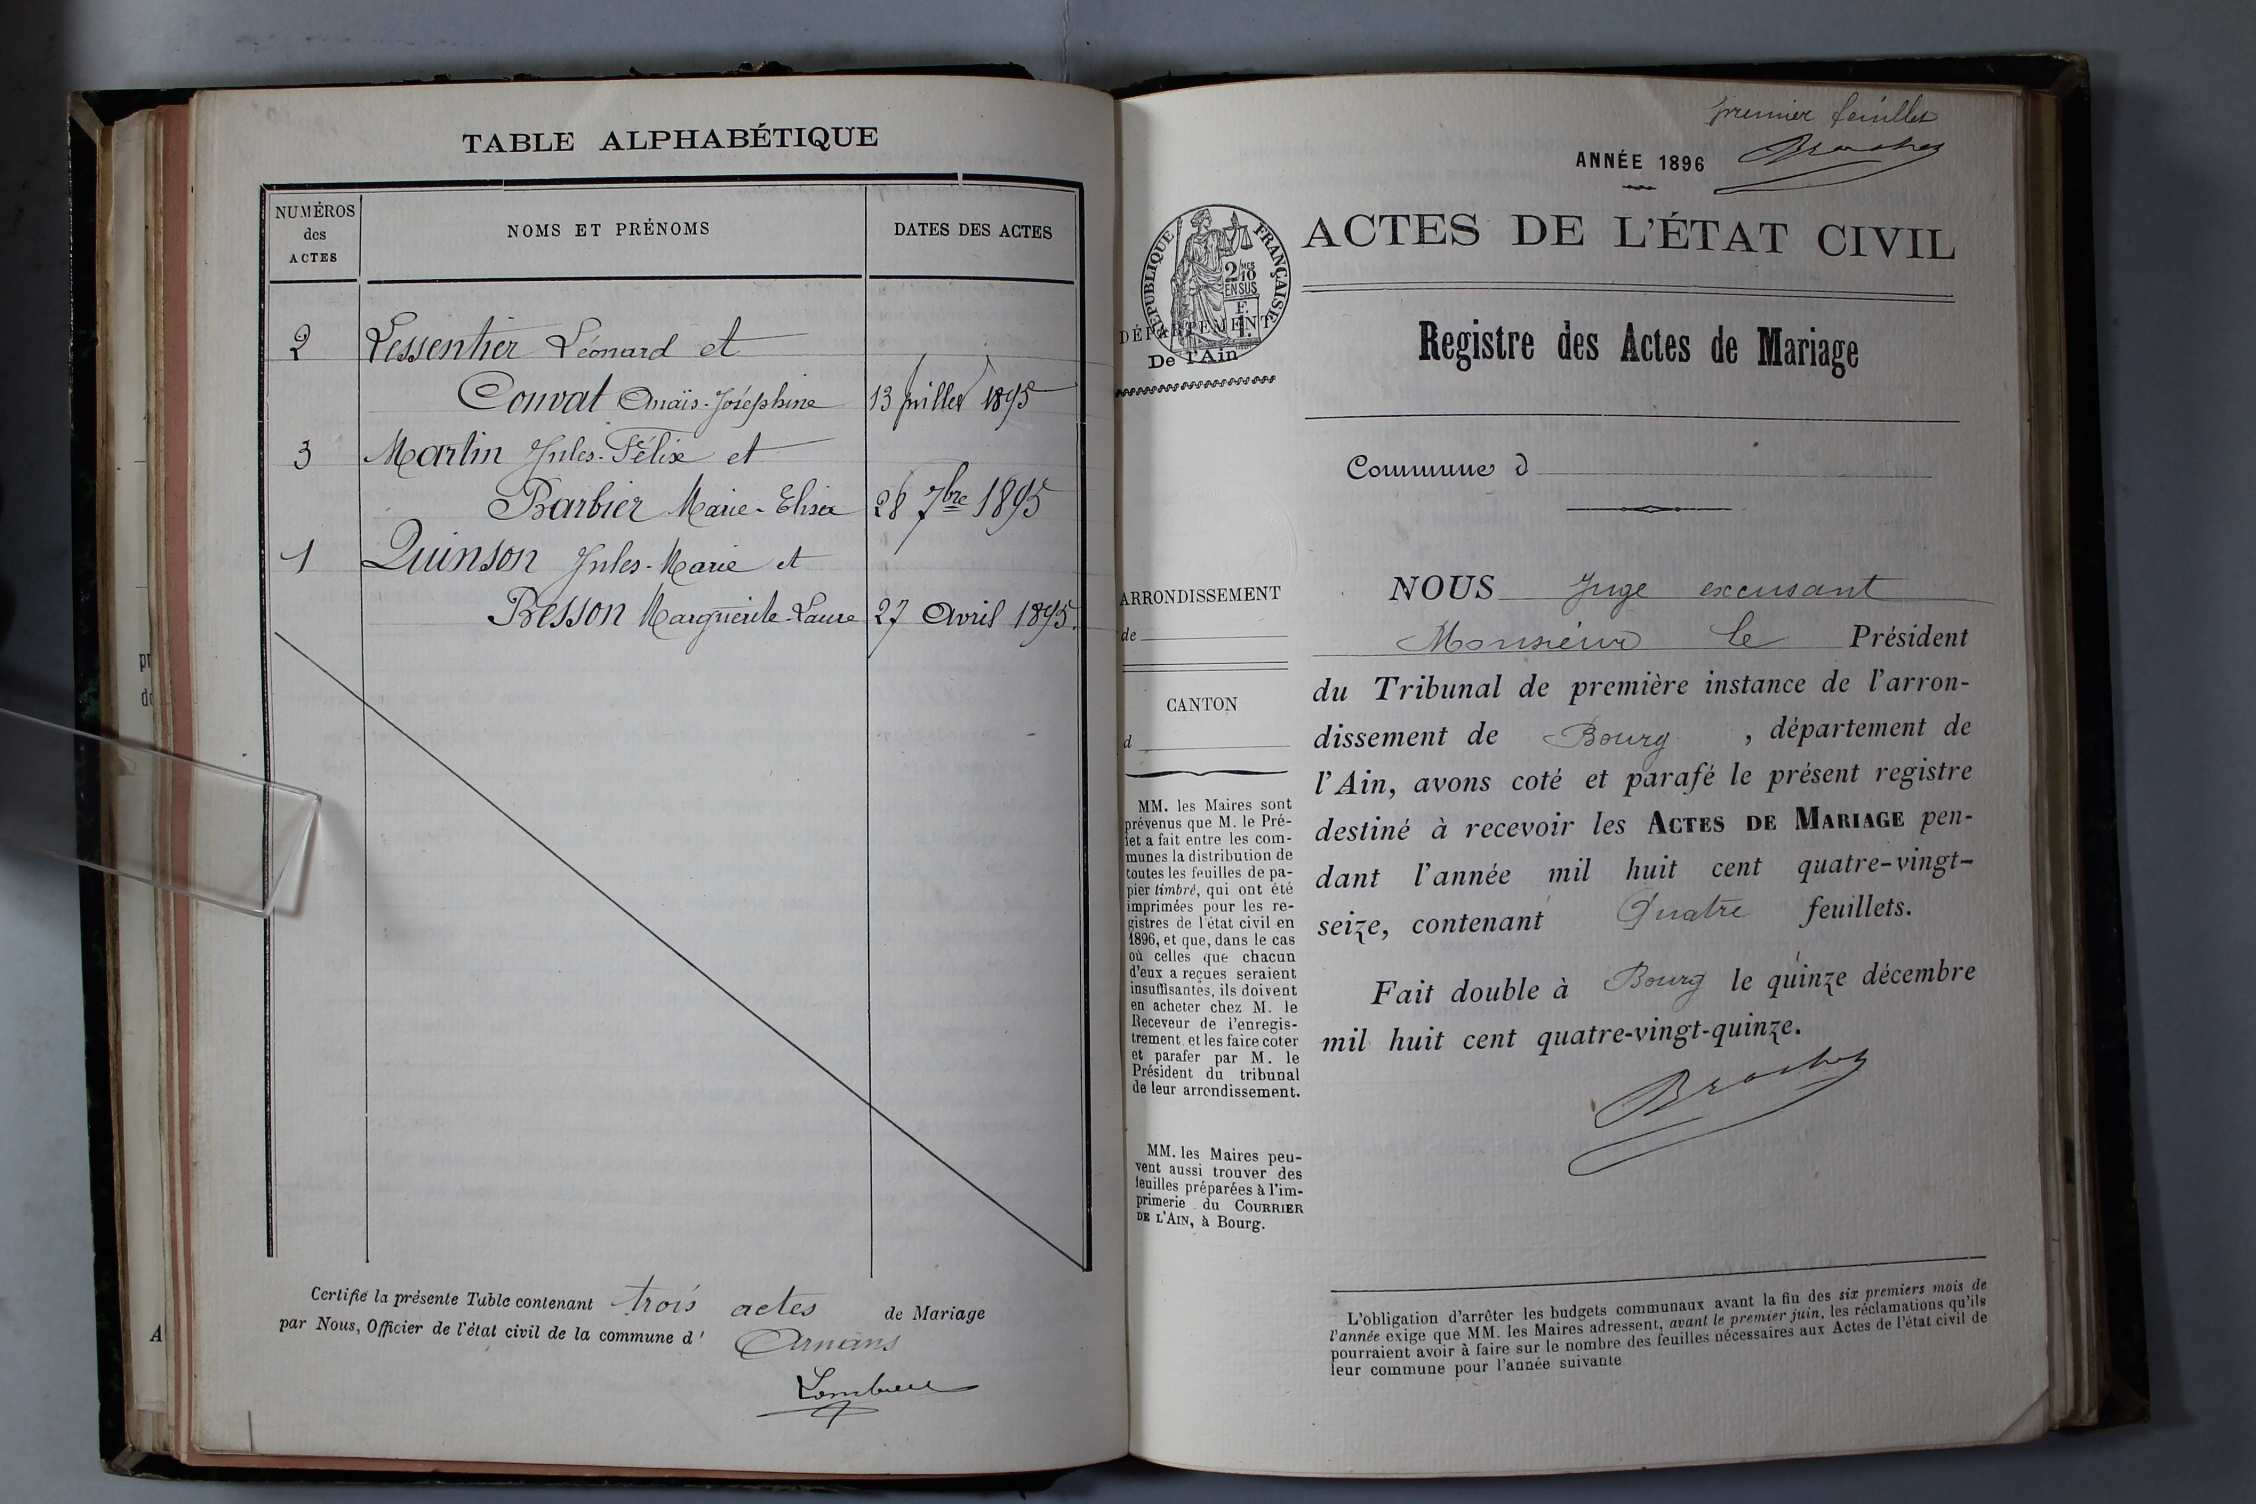 TABLE ALPHABÉTIQUE
NUMÉROS
des
ACTES
NOMS ET PRÉNOMS
DATES DES ACTES
2 Lessentier Léonard et
Convat Anaïs-Joséphine 13 juillet 1895
3 Martin Jules-Félix et
Barbier Marie-Elisa 28 7bre 1895
1 Quinson Jules-Marie et
Besson Marguerite-Laure 27 Avril 1895.
Certifié la présente Table contenant trois actes de Mariage
par Nous, Officier de l'état civil de la commune d' Arnans
premier feuillet
ANNÉE 1896
RÉPUBLIQUE FRANÇAISE
2/10 MES
EN SUS
F.
1.
DÉPARTEMENT
De l'Ain
ACTES DE L'ÉTAT CIVIL
Registre des Actes de Mariage
Commune d
ARRONDISSEMENT
de
CANTON
d
MM. les Maires sont
prévenus que M. le Pré-
fet a fait entre les com-
munes la distribution de
toutes les feuilles de pa-
pier timbré, qui ont été
imprimées pour les re-
gistres de l'état civil en
1896, et que, dans le cas
où celles que chacun
d'eux a reçues seraient
insuffisantes, ils doivent
en acheter chez M. le
Receveur de l'enregis-
trement et les faire coter
et parafer par M. le
Président du tribunal
de leur arrondissement.
MM. les Maires peu-
vent aussi trouver des
feuilles préparées à l'im-
primerie du COURRIER
DE L'AIN, à Bourg.
NOUS Juge excusant
Monsieur le Président
du Tribunal de première instance de l'arron-
dissement de Bourg, département de
l'Ain, avons coté et parafé le présent registre
destiné à recevoir les ACTES DE MARIAGE pen-
dant l'année mil huit cent quatre-vingt-
seize, contenant Quatre feuillets.
Fait double à Bourg le quinze décembre
mil huit cent quatre-vingt-quinze.
L'obligation d'arrêter les budgets communaux avant la fin des six premiers mois de
l'année exige que MM. les Maires adressent, avant le premier juin, les réclamations qu'ils
pourraient avoir à faire sur le nombre des feuilles nécessaires aux Actes de l'état civil de
leur commune pour l'année suivante